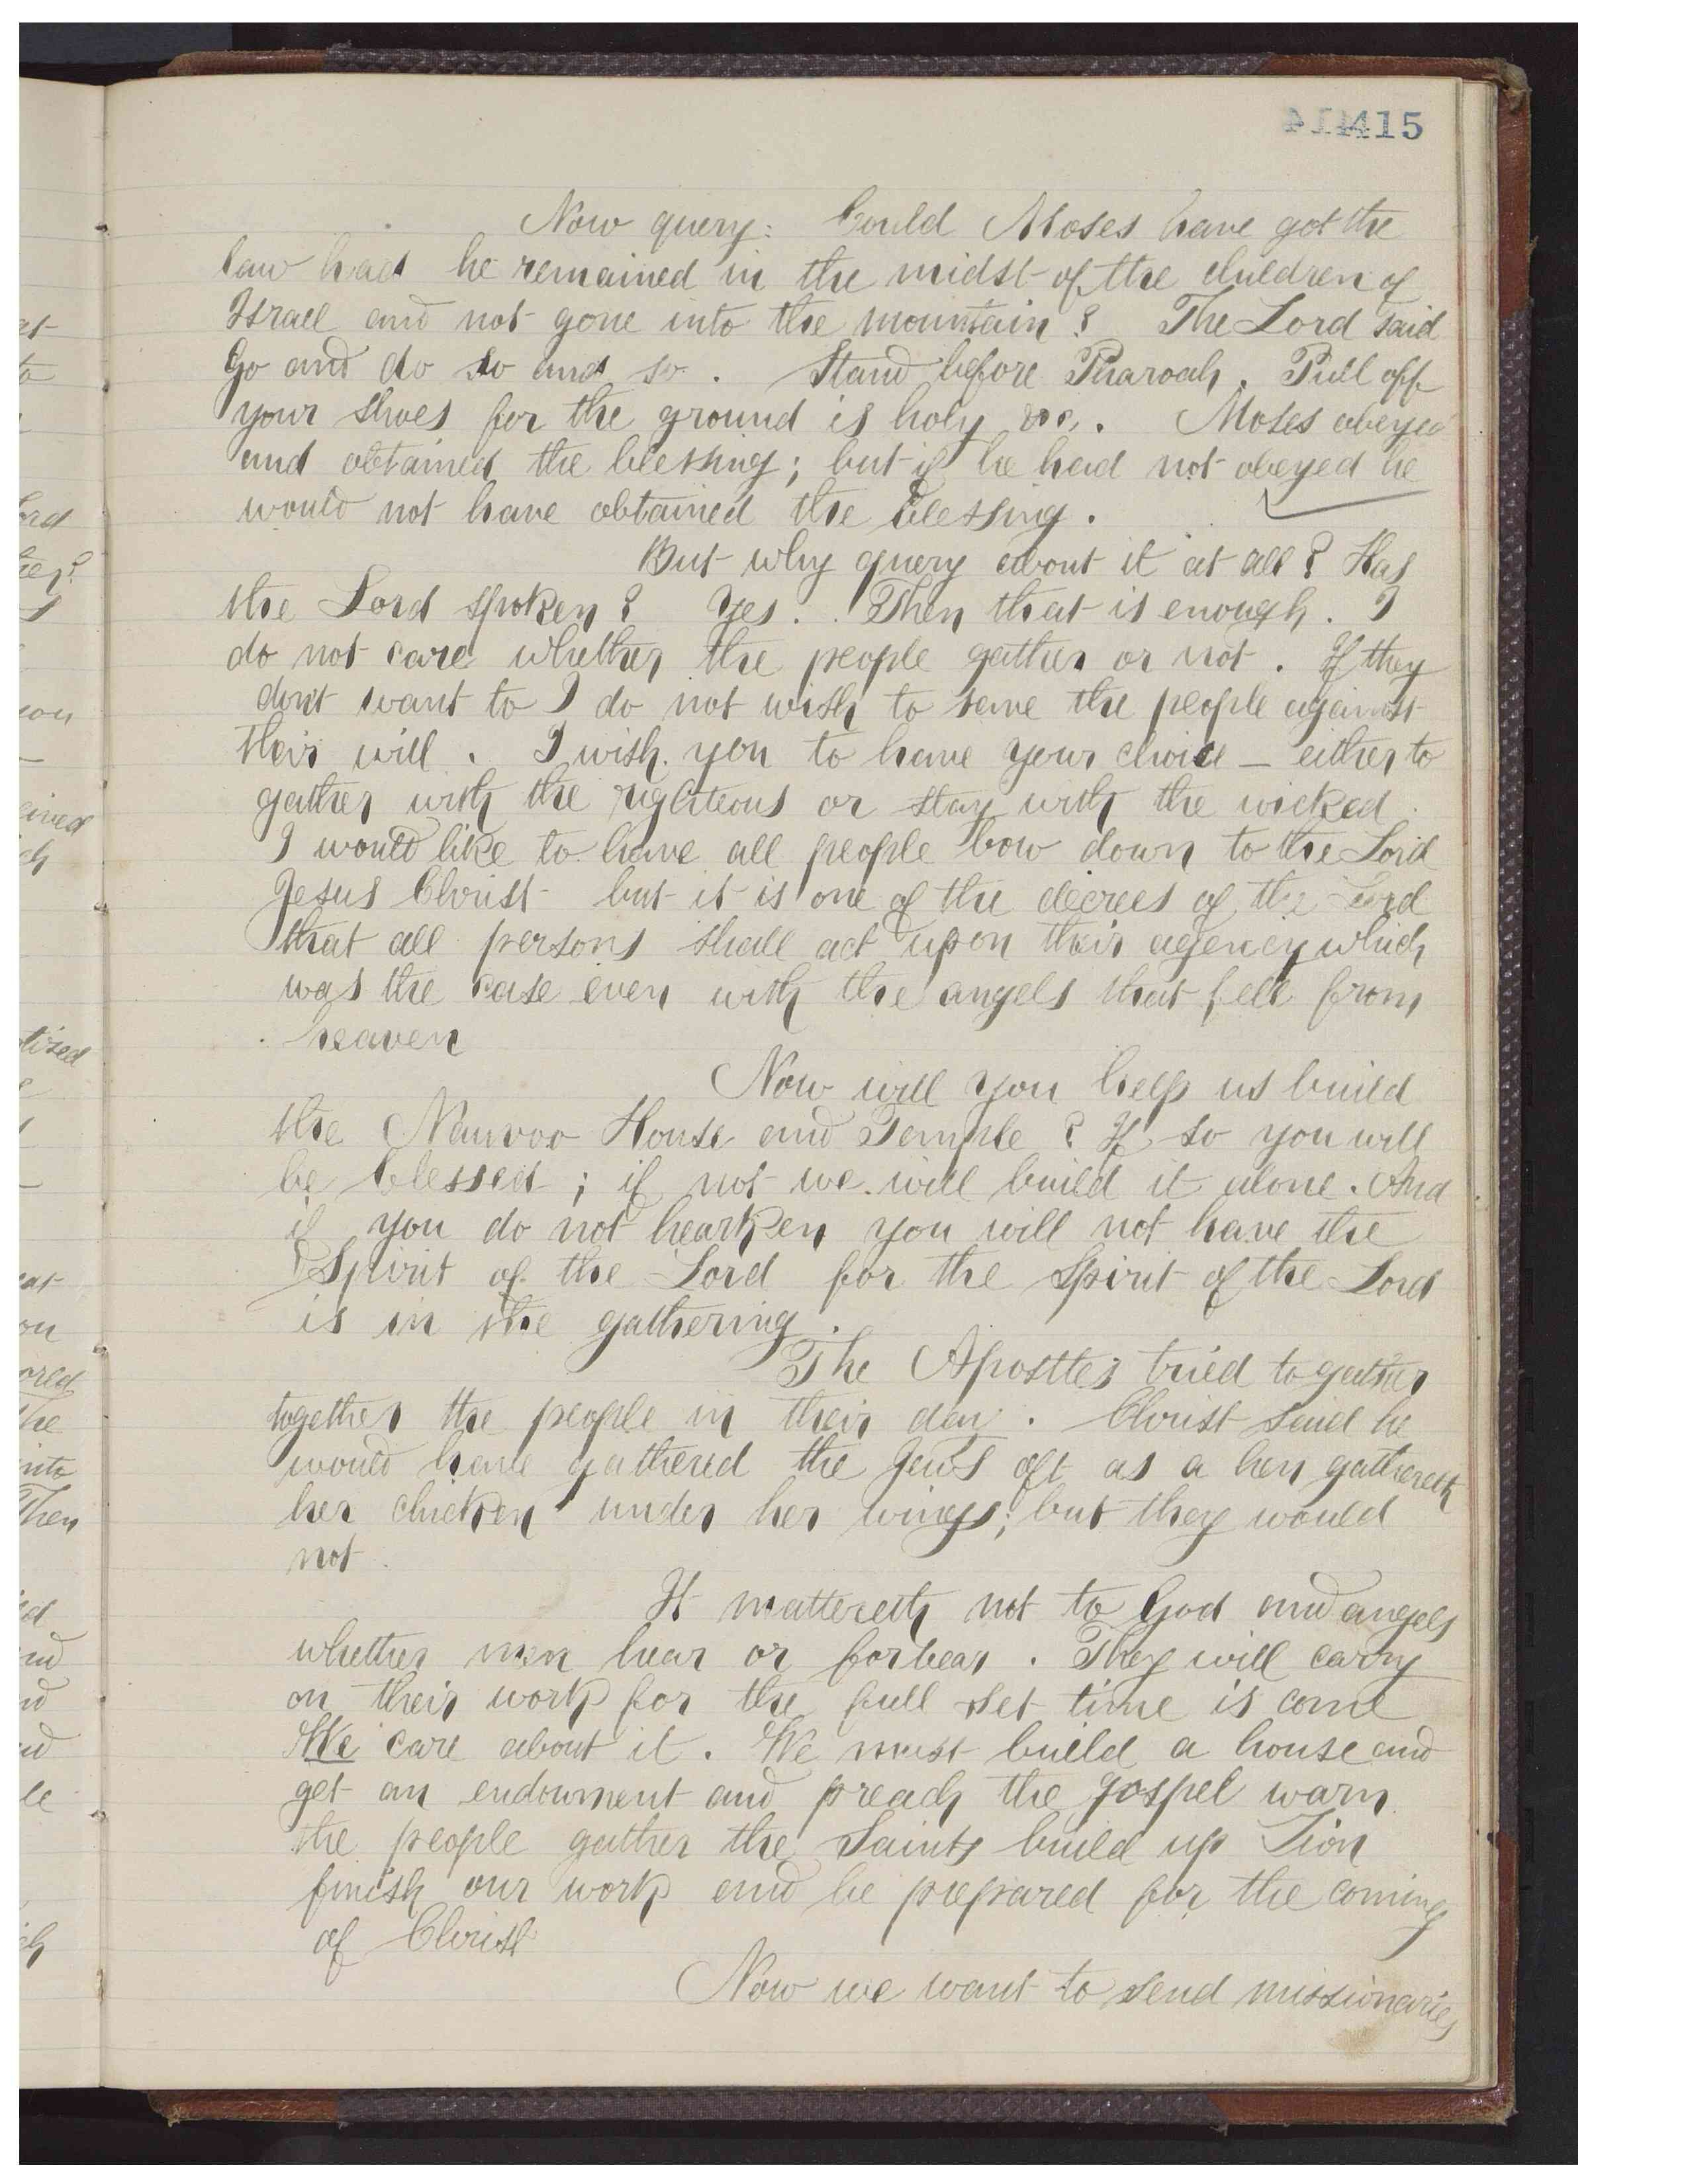 415
Now query: Could Moses have got the
law had he remained in the midst of the children of
Israel and not gone into the mountain? The Lord said
Go and do so and so. Stand before Pharoah. Pull off
your shoes for the ground is holy &c,. Moses obeyed
and obtained the blessing; but if he had not obeyed he
would not have obtained the blessing.
But why query about it at all? Has
the Lord spoken? Yes. Then that is enough. I
do not care whether the people gather or not. If they
don't want to I do not wish to serve the people against
their will. I wish you to have your choice – either to
gather with the righteous or stay with the wicked.
I would like to have all people bow down to the Lord
Jesus Christ but it is one of the decrees of the Lord
that all persons shall act upon their agency which
was the case even with the angels that fell from
heaven
Now will you help us build
the Nauvoo House and Temple? If so you will
be blessed; if not we will build it alone. And
if you do not hearken you will not have the
Spirit of the Lord for the Spirit of the Lord
is in the gathering.
The Apostles tried to gather
together the people in their day. Christ said he
would have gathered the Jews oft as a hen gathereth
her chicken under her wings; but they would
not.
It mattereth not to God and angels
whether men hear or forbear. They will carry
on their work for the full set time is come
We care about it. We must build a house and
get an endowment and preach the gospel warn
the people gather the Saints build up Zion
finish our work and be prepared for the coming
of Christ
Now we want to send missionaries